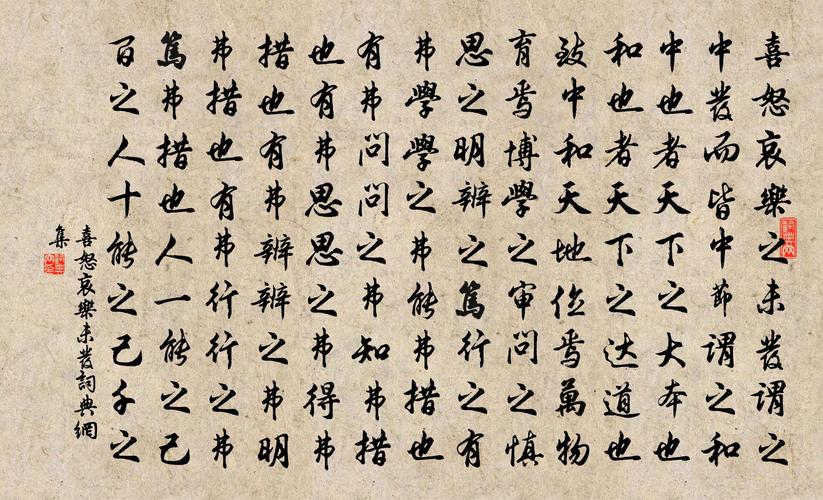 喜怒哀樂之未發謂之
中發而皆中節謂之和
中也者天下之大本也
和也者天下之达道也
致中和天地位焉萬物
育焉博學之审問之慎
思之明辨之篤行之有
弗學學之弗能弗措也
有弗問問之弗知弗措
也有弗思思之弗得弗
措也有弗辨辨之弗明
弗措也有弗行行之弗
篤弗措也人一能之己
百之人十能之己千之
喜怒哀樂未發詞典網
集